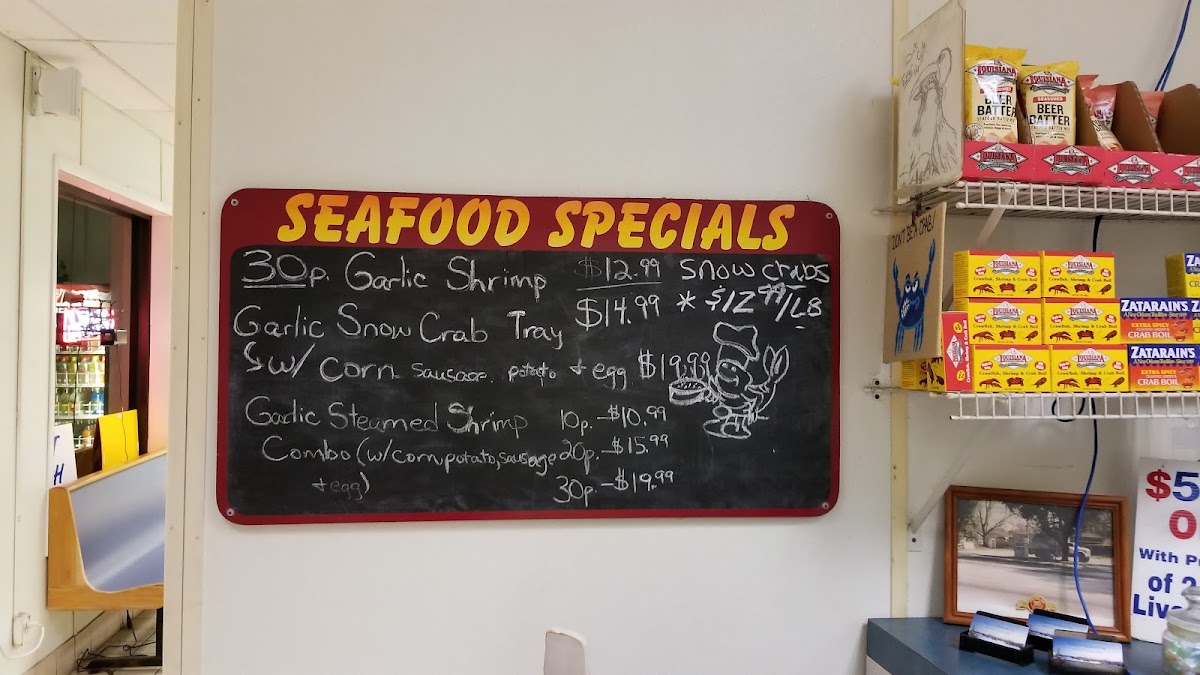 SEAFOOD SPECIALS
30p. Garlic Shrimp $12.99
Snow crabs
* $12.99/LB
Garlic Snow Crab Tray $14.99
w/ corn sausage, potato + egg $19.99
Garlic Steamed Shrimp 10p. - $10.99
Combo (w/corn, potato, sausage 20p. - $15.99
+ egg) 30p. - $19.99
LOUISIANA
SEASONED
BEER
BATTER
LOUISIANA
SEASONED
BEER
BATTER
LOUISIANA
LOUISIANA
LOUISIANA
DON'T BE A CRAB!
LOUISIANA
Crawfish, Shrimp & Crab Boil
LOUISIANA
Crawfish, Shrimp & Crab Boil
LOUISIANA
Crawfish, Shrimp & Crab Boil
LOUISIANA
Crawfish, Shrimp & Crab Boil
ZATARAIN'S
EXTRA SPICY
CRAB BOIL
ZATARAIN'S
EXTRA SPICY
CRAB BOIL
$5
With P
of 2
Live